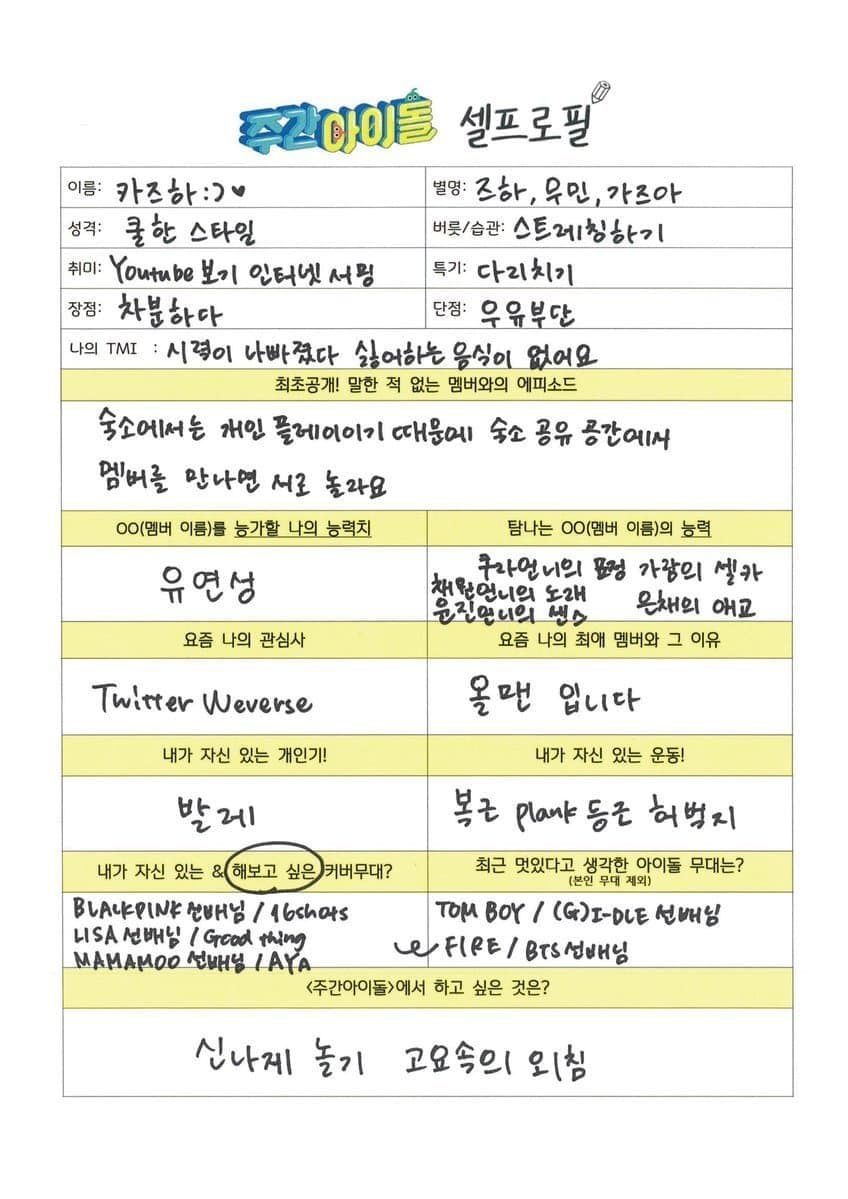 주간아이돌 셀프로필
이름: 카즈하:) ♥ 별명: 즈하, 무민, 가즈아
성격: 쿨한 스타일 버릇/습관: 스트레칭하기
취미: Youtube 보기 인터넷 서핑 특기: 다리치기
장점: 차분하다 단점: 우유부단
나의 TMI : 시력이 나빠졌다 싫어하는 음식이 없어요
최초공개! 말한 적 없는 멤버와의 에피소드
숙소에서는 개인 플레이이기 때문에 숙소 공유 공간에서
멤버를 만나면 서로 놀라요
OO(멤버 이름)를 능가할 나의 능력치 탐나는 OO(멤버 이름)의 능력
유연성
쿠라언니의 표정 가람의 셀카
채원언니의 노래
윤진언니의 센스 은채의 애교
요즘 나의 관심사 요즘 나의 최애 멤버와 그 이유
Twitter Weverse 올맨 입니다
내가 자신 있는 개인기! 내가 자신 있는 운동!
발레 복근 plank 등근 허벅지
내가 자신 있는 & 해보고 싶은 커버무대? 최근 멋있다고 생각한 아이돌 무대는?
(본인 무대 제외)
BLACKPINK 선배님 / 16shots TOM BOY / (G)I-DLE 선배님
LISA 선배님 / Good thing
FIRE / BTS 선배님
MAMAMOO 선배님 / AYA
<주간아이돌>에서 하고 싶은 것은?
신나게 놀기 고요속의 외침